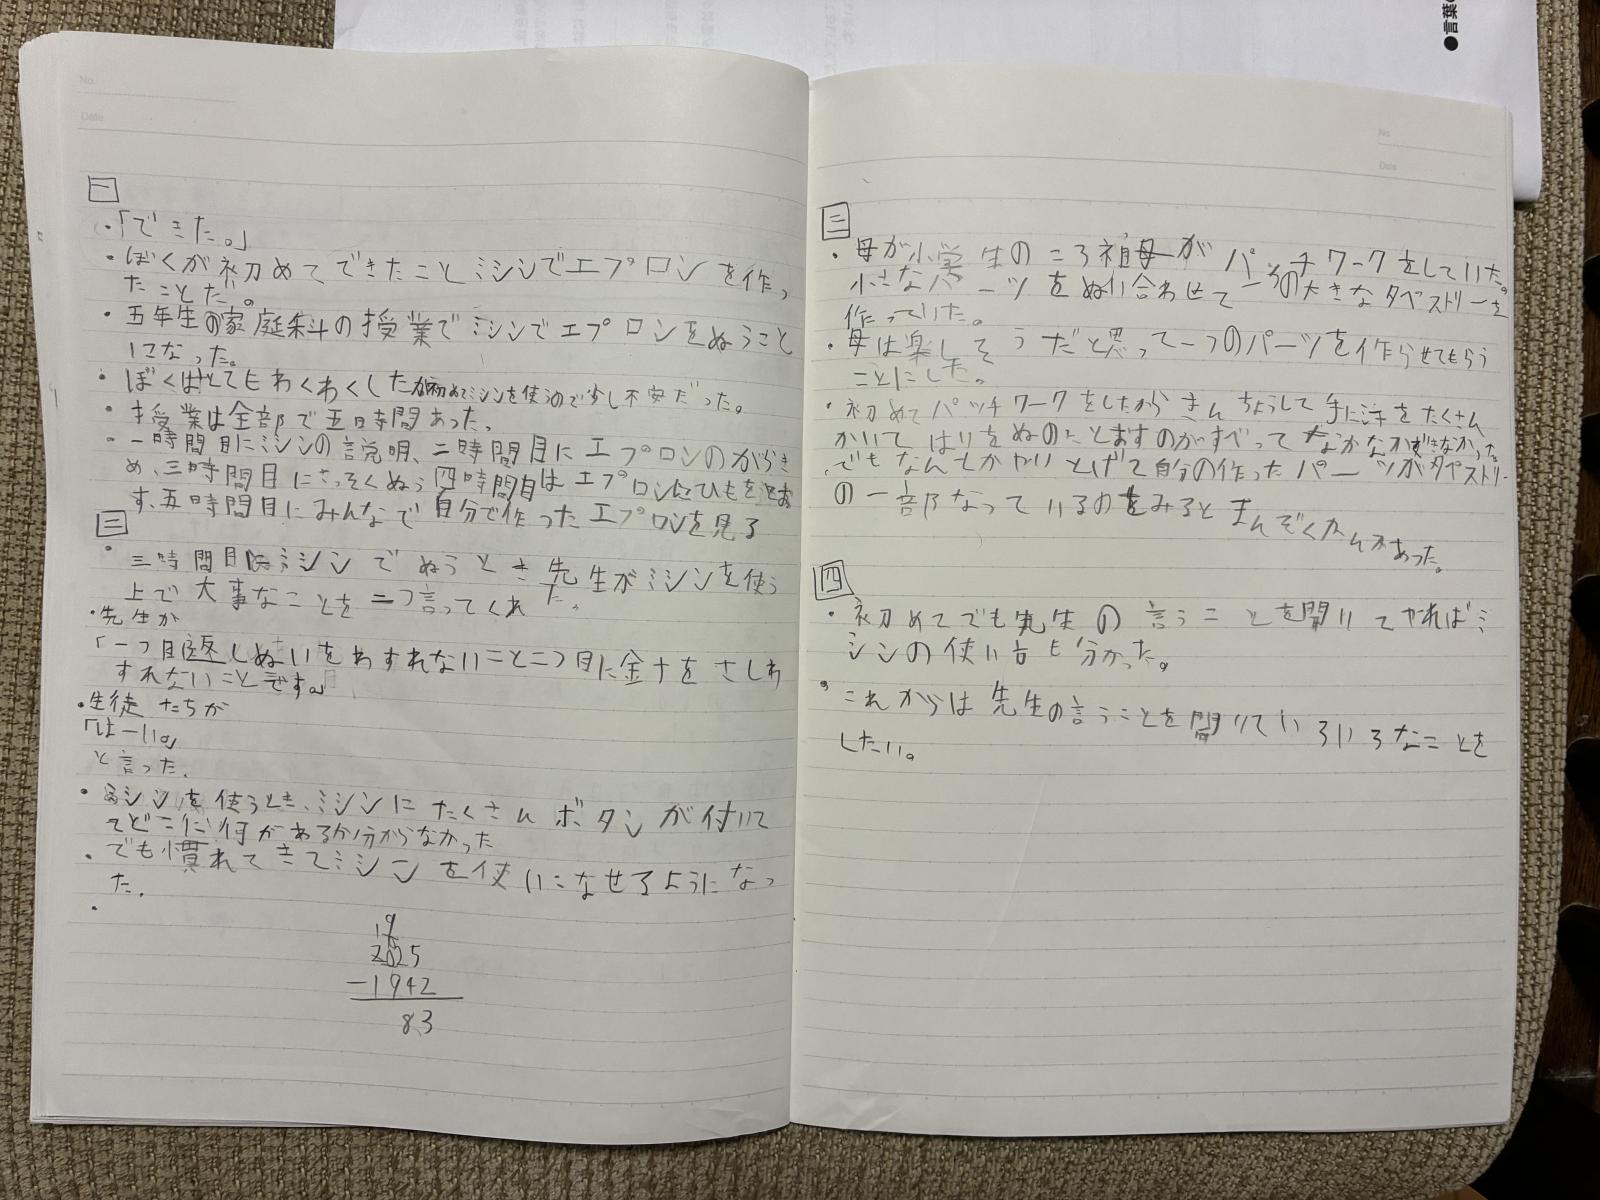 No.
Date
一
・「できた。」
・ぼくが初めてできたことミシンでエプロンを作っ
たことだ。
・五年生の家庭科の授業でミシンでエプロンをぬうこと
になった。
・ぼくはとてもわくわくしたが初めてミシンを使うので少し不安だった。
・授業は全部で五時間あった。
・一時間目にミシンの説明、二時間目にエプロンのがらき
め、三時間目にさっそくぬう四時間目はエプロンにひもをとお
す、五時間目にみんなで自分で作ったエプロンを見る
二
・三時間目はミシンでぬうとき先生がミシンを使う
上で大事なことを二つ言ってくれた。
・先生が
「一つ目返しぬいをわすれないこと二つ目に針をさしわ
すれないことです。」
・生徒たちが
「はーい。」
と言った。
・ミシンを使うとき、ミシンにたくさんボタンが付いて
てどこに何があるか分からなかった
・でも慣れてきてミシンを使いこなせるようになっ
た.
・
19
2025
-1942
83
●言葉
No.
Date
三
・母が小学生のころ祖母がパッチワークをしていた。
小さなパーツをぬい合わせて一つの大きなタペストリーを
作っていた。
・母は楽しそうだと思って一つのパーツを作らせてもらう
ことにした。
・初めてパッチワークをしたからきんちょうして手に汗をたくさん
かいてはりをぬのにとおすのがすべってなかなかできなかった。
・でもなんとかやりとげて自分の作ったパーツがタペストリー
の一部なっているのをみるとまんぞくかんがあった。
四
・初めてでも先生の言うことを聞いてやればミ
シンの使い方も分かった。
・これからは先生の言うことを聞いていろいろなことを
したい。